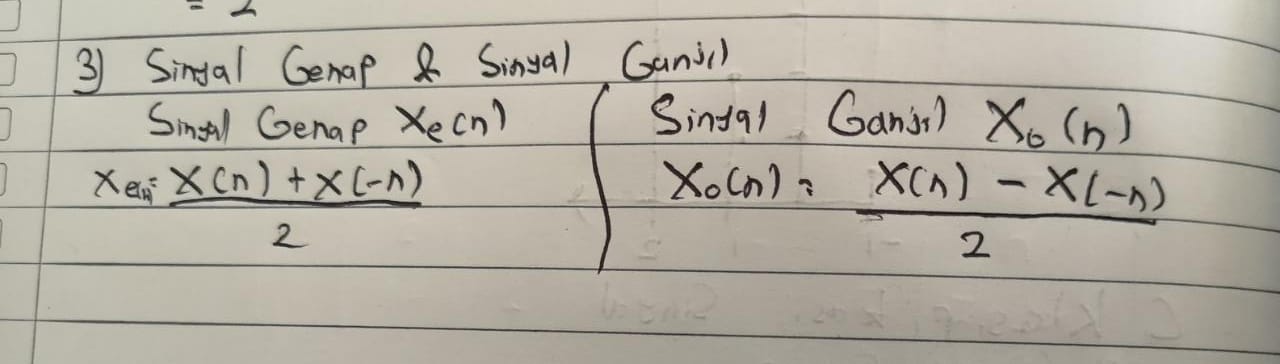 = 2
3) Sinyal Genap & Sinyal Ganjil
Sinyal Genap Xe(n)
Xe(n) = X(n) + X(-n)
2
Sinyal Ganjil Xo(n)
Xo(n) = X(n) - X(-n)
2